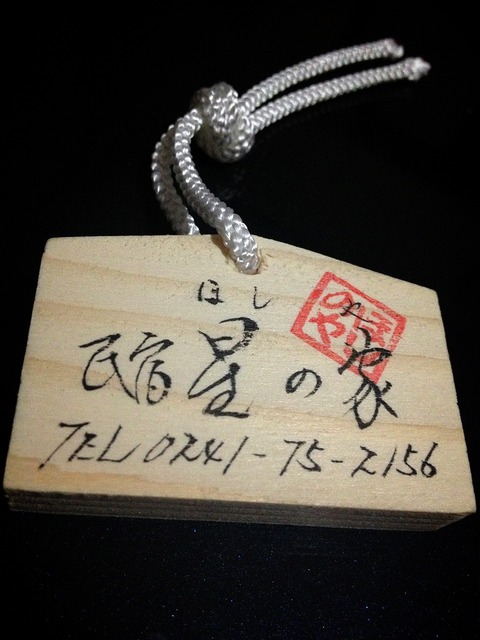 ほし や
民宿 星の家
TEL 0241-75-2156
ほし
のや